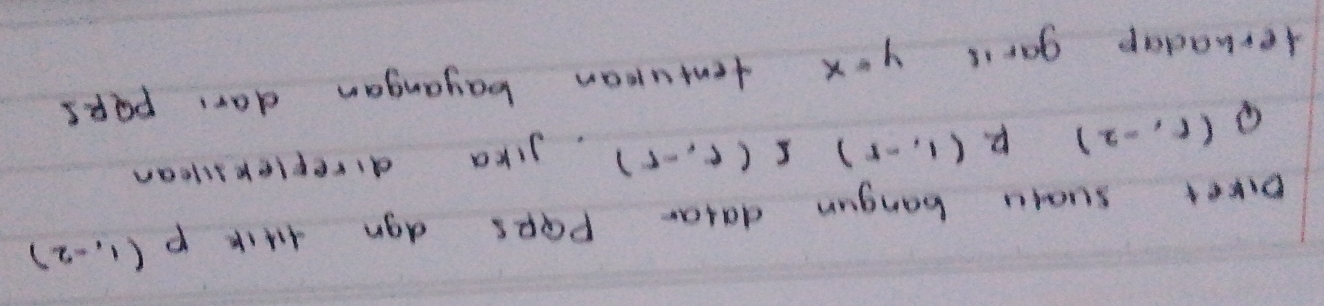 Diket suatu bangun datar PQRS dgn titik P (1, -2)
Q (5, -2) R (1, -5) S (5, -5). Jika direfleksikan
terhadap garis y = x tentukan bayangan dari PQRS